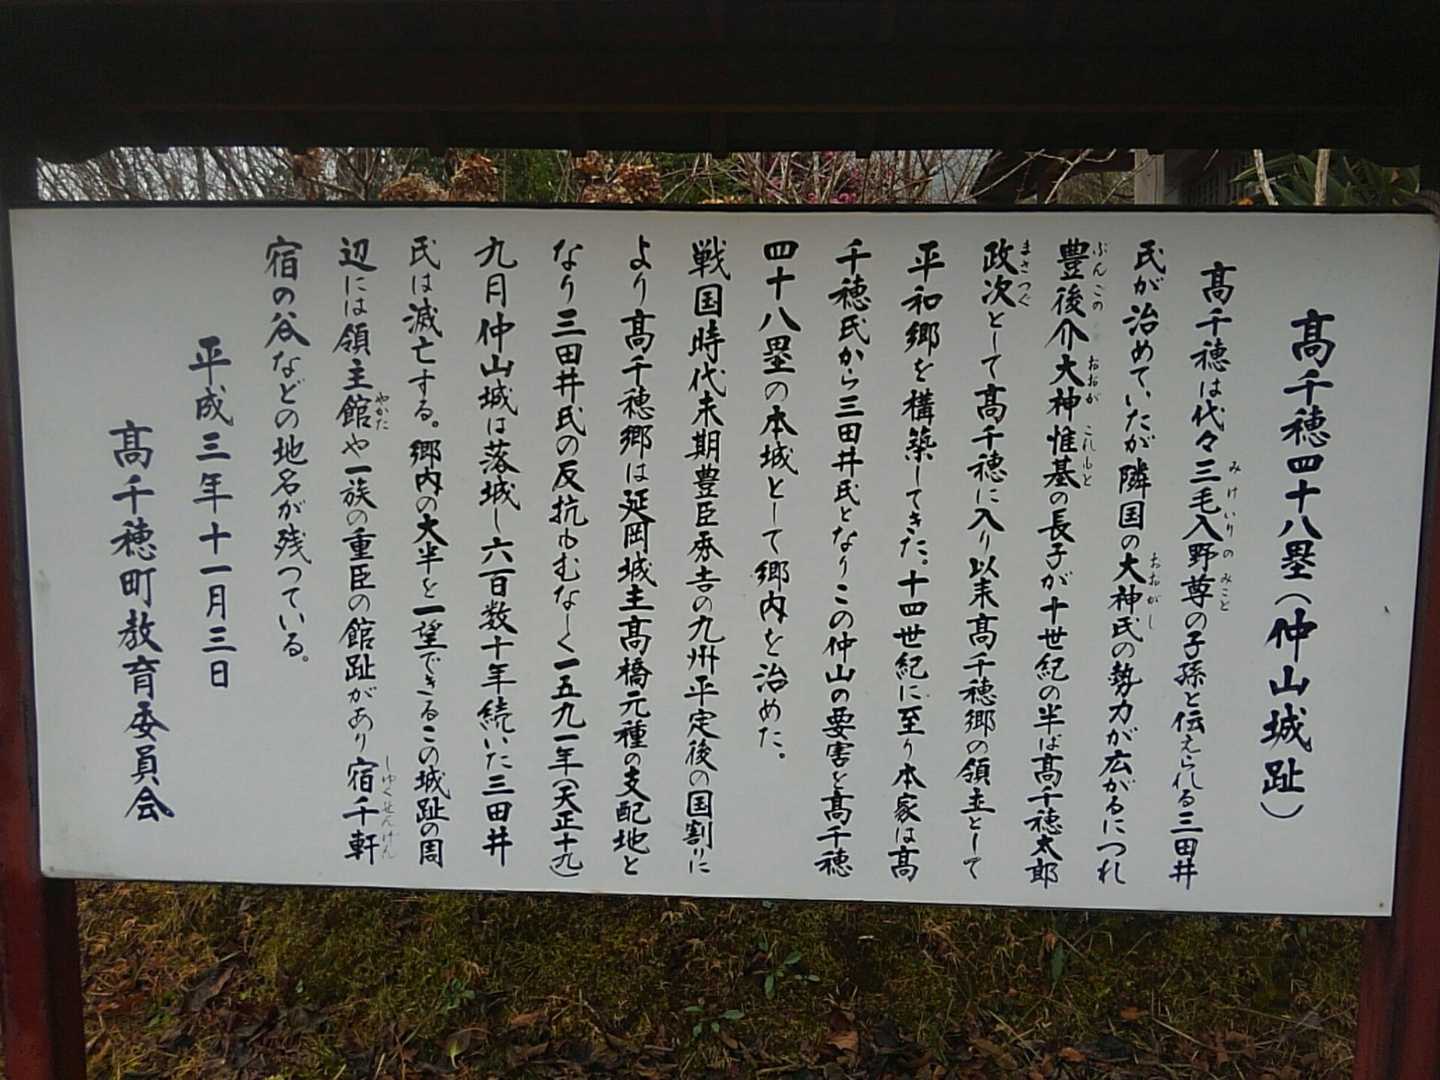 髙千穂四十八塁（仲山城趾）
髙千穂は代々三毛入野尊の子孫と伝えられる三田井
氏が治めていたが隣国の大神氏の勢力が広がるにつれ
豊後介大神惟基の長子が十世紀の半ば髙千穂太郎
政次として髙千穂に入り以来髙千穂郷の領主として
平和郷を構築してきた。十四世紀に至り本家は髙
千穂氏から三田井氏となりこの仲山の要害を髙千穂
四十八塁の本城として郷内を治めた。
戦国時代末期豊臣秀吉の九州平定後の国割りに
より髙千穂郷は延岡城主髙橋元種の支配地と
なり三田井氏の反抗もむなしく一五九一年（天正十九）
九月仲山城は落城し六百数十年続いた三田井
氏は滅亡する。郷内の大半を一望できるこの城趾の周
辺には領主館や一族の重臣の館趾があり宿千軒
宿の谷などの地名が残っている。
平成三年十一月三日
髙千穂町教育委員会